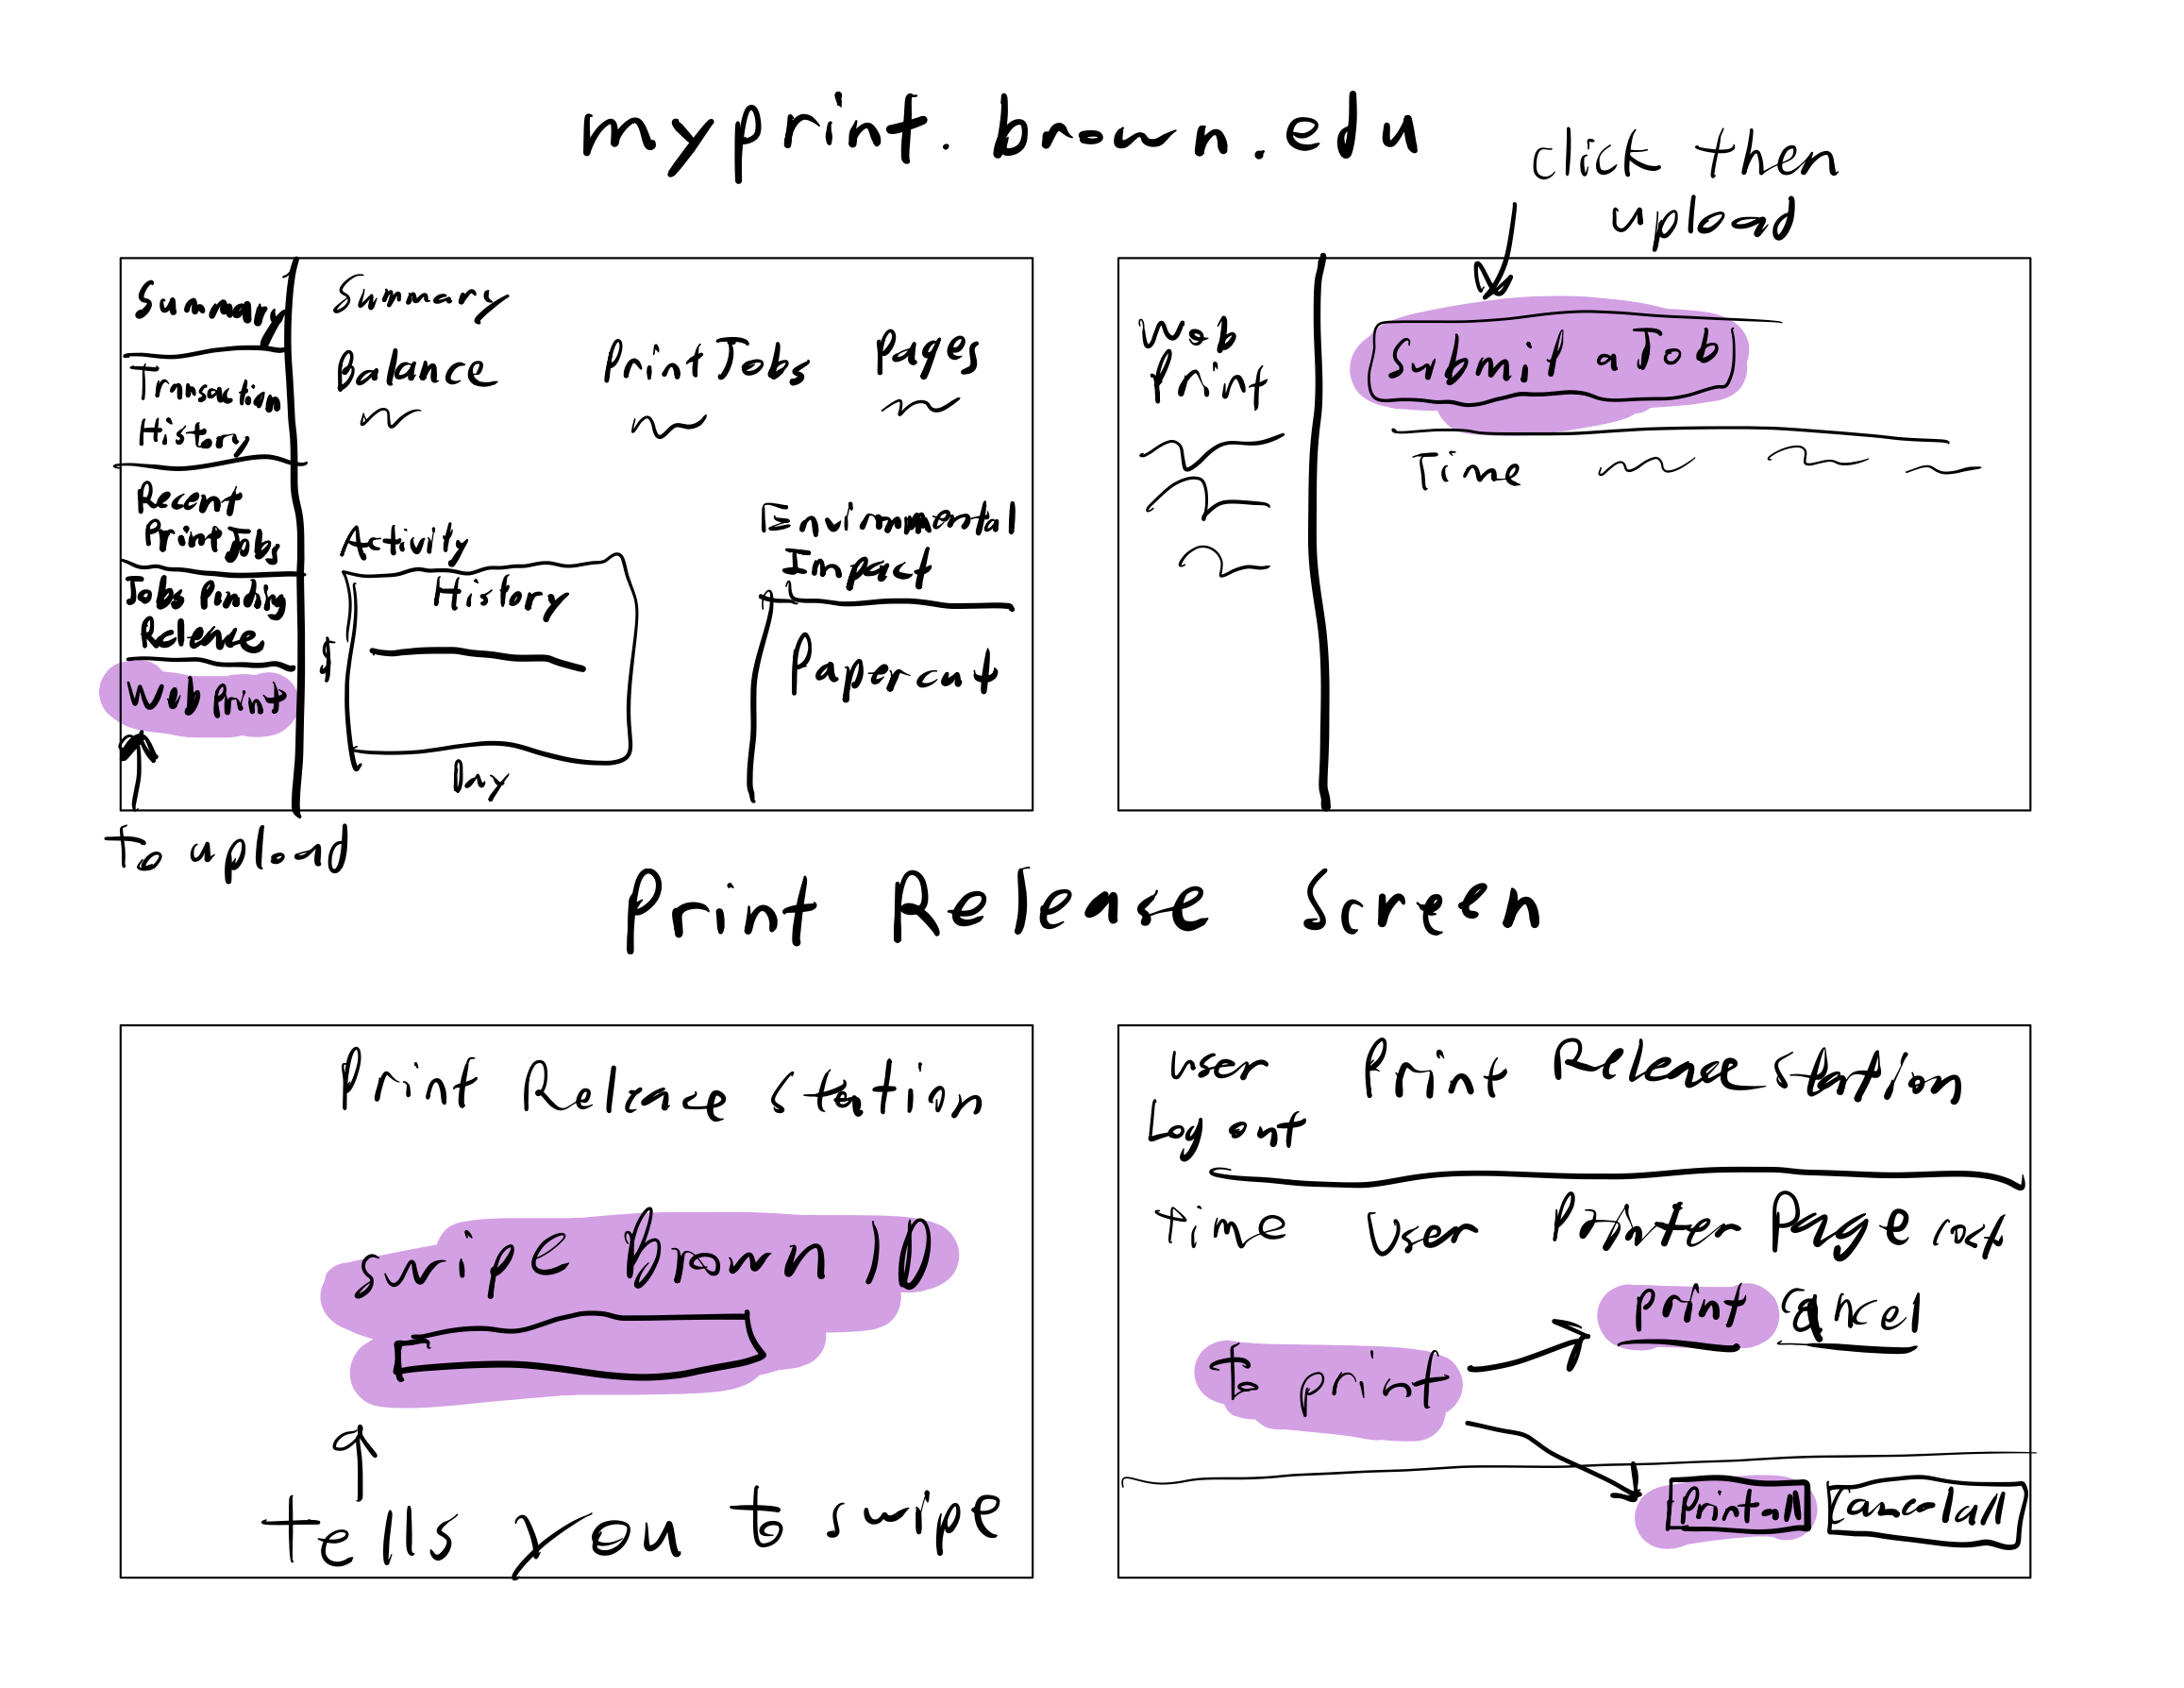 myprint.brown.edu
click then
upload
Summary
Transaction
History
Recent
Print Jobs
Jobs Pending
Release
Web Print
Summary
Balance
Print Jobs
Pages
Activity
History
$
Day
Environmental
Impact
Papercut
to upload
Web
Print
Submit a Job
Time
Print Release Screen
Print Release Station
swipe brown ID
tells you to swipe
User
Log out
Print Release Station
Time User Printer Page Cost
print Cancel
to print
Print all Cancel all